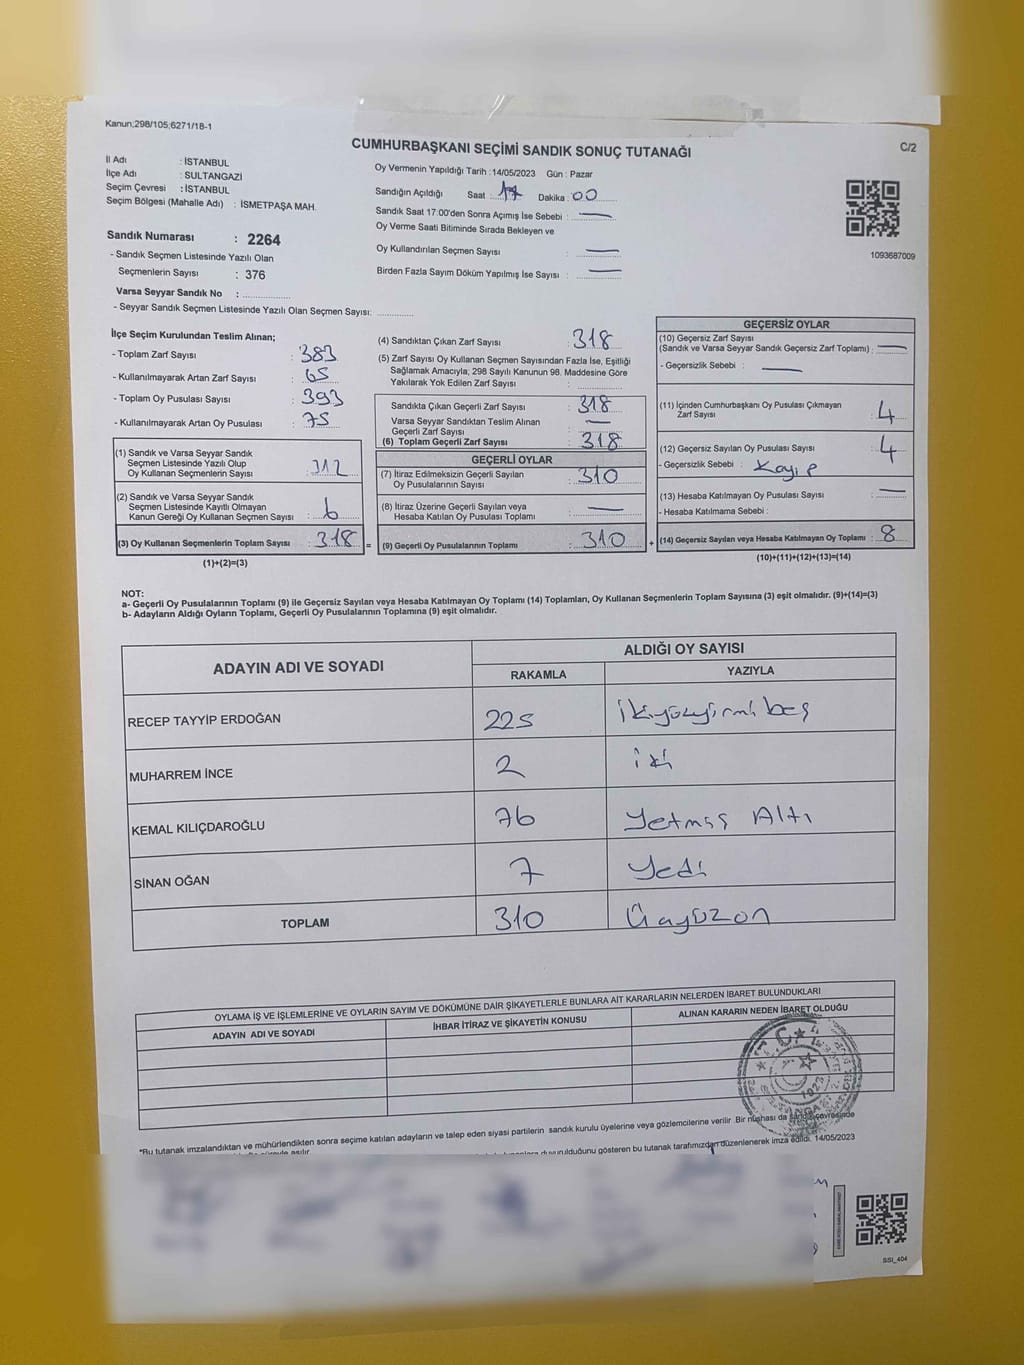 Kanun;298/105;6271/18-1
C/2
CUMHURBAŞKANI SEÇİMİ SANDIK SONUÇ TUTANAĞI
İl Adı : İSTANBUL
İlçe Adı : SULTANGAZİ
Seçim Çevresi : İSTANBUL
Seçim Bölgesi (Mahalle Adı) : İSMETPAŞA MAH.
Sandık Numarası : 2264
- Sandık Seçmen Listesinde Yazılı Olan
Seçmenlerin Sayısı : 376
Varsa Seyyar Sandık No :
- Seyyar Sandık Seçmen Listesinde Yazılı Olan Seçmen Sayısı:
Oy Vermenin Yapıldığı Tarih :14/05/2023 Gün : Pazar
Sandığın Açıldığı Saat : 17 Dakika : 00
Sandık Saat 17.00'den Sonra Açımış İse Sebebi : —
Oy Verme Saati Bitiminde Sırada Bekleyen ve
Oy Kullandırılan Seçmen Sayısı : —
Birden Fazla Sayım Döküm Yapılmış İse Sayısı : —
1093687009
İlçe Seçim Kurulundan Teslim Alınan;
- Toplam Zarf Sayısı : 383
- Kullanılmayarak Artan Zarf Sayısı : 65
- Toplam Oy Pusulası Sayısı : 393
- Kullanılmayarak Artan Oy Pusulası : 75
(1) Sandık ve Varsa Seyyar Sandık
Seçmen Listesinde Yazılı Olup
Oy Kullanan Seçmenlerin Sayısı : 312
(2) Sandık ve Varsa Seyyar Sandık
Seçmen Listesinde Kayıtlı Olmayan
Kanun Gereği Oy Kullanan Seçmen Sayısı : 6
(3) Oy Kullanan Seçmenlerin Toplam Sayısı : 318 =
(1)+(2)=(3)
(4) Sandıktan Çıkan Zarf Sayısı : 318
(5) Zarf Sayısı Oy Kullanan Seçmen Sayısından Fazla İse, Eşitliği
Sağlamak Amacıyla; 298 Sayılı Kanunun 98. Maddesine Göre
Yakılarak Yok Edilen Zarf Sayısı :
Sandıkta Çıkan Geçerli Zarf Sayısı : 318
Varsa Seyyar Sandıktan Teslim Alınan
Geçerli Zarf Sayısı : —
(6) Toplam Geçerli Zarf Sayısı : 318
GEÇERLİ OYLAR
(7) İtiraz Edilmeksizin Geçerli Sayılan
Oy Pusulalarının Sayısı : 310
(8) İtiraz Üzerine Geçerli Sayılan veya
Hesaba Katılan Oy Pusulası Toplamı : —
(9) Geçerli Oy Pusulalarının Toplamı : 310 +
GEÇERSİZ OYLAR
(10) Geçersiz Zarf Sayısı
(Sandık ve Varsa Seyyar Sandık Geçersiz Zarf Toplamı) : —
- Geçersizlik Sebebi : —
(11) İçinden Cumhurbaşkanı Oy Pusulası Çıkmayan
Zarf Sayısı : 4
(12) Geçersiz Sayılan Oy Pusulası Sayısı : 4
- Geçersizlik Sebebi : Kayıp
(13) Hesaba Katılmayan Oy Pusulası Sayısı : —
- Hesaba Katılmama Sebebi :
(14) Geçersiz Sayılan veya Hesaba Katılmayan Oy Toplamı : 8
(10)+(11)+(12)+(13)=(14)
NOT:
a- Geçerli Oy Pusulalarının Toplamı (9) ile Geçersiz Sayılan veya Hesaba Katılmayan Oy Toplamı (14) Toplamları, Oy Kullanan Seçmenlerin Toplam Sayısına (3) eşit olmalıdır. (9)+(14)=(3)
b- Adayların Aldığı Oyların Toplamı, Geçerli Oy Pusulalarının Toplamına (9) eşit olmalıdır.
ADAYIN ADI VE SOYADI
ALDIĞI OY SAYISI
RAKAMLA YAZIYLA
RECEP TAYYİP ERDOĞAN 225 ikiyüzyirmi beş
MUHARREM İNCE 2 iki
KEMAL KILIÇDAROĞLU 76 Yetmiş Altı
SİNAN OĞAN 7 Yedi
TOPLAM 310 Üçyüzon
OYLAMA İŞ VE İŞLEMLERİNE VE OYLARIN SAYIM VE DÖKÜMÜNE DAİR ŞİKAYETLERLE BUNLARA AİT KARARLARIN NELERDEN İBARET BULUNDUKLARI
ADAYIN ADI VE SOYADI İHBAR İTİRAZ VE ŞİKAYETİN KONUSU ALINAN KARARIN NEDEN İBARET OLDUĞU
T.C.
1923
*Bu tutanak imzalandıktan ve mühürlendikten sonra seçime katılan adayların ve talep eden siyasi partilerin sandık kurulu üyelerine veya gözlemcilerine verilir. Bir nüshası da sandık çevresinde
duyurulduğunu gösteren bu tutanak tarafımızdan düzenlenerek imza edildi. 14/05/2023
SSI_404